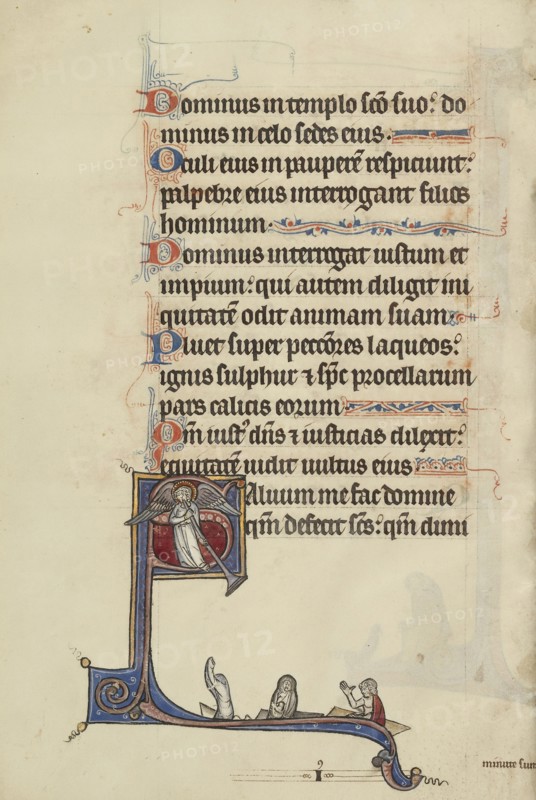 Dominus in templo scō suo: do
minus in celo sedes eius.
Oculi eius in pauperē respiciunt:
palpebre eius interrogant filios
hominum.
Dominus interrogat iustum et
impium: qui autem diligit ini
quitatē odit animam suam.
Pluet super peccōres laqueos:
ignis sulphur ⁊ sp̄c procellarum
pars calicis eorum
Qm̄ iust' dn̄s ⁊ iusticias dilexit:
equitatē uidit uultus eius
Saluum me fac domine
qm̄ defecit sc̄s: qm̄ dimi
minute sunt
PHOTO12